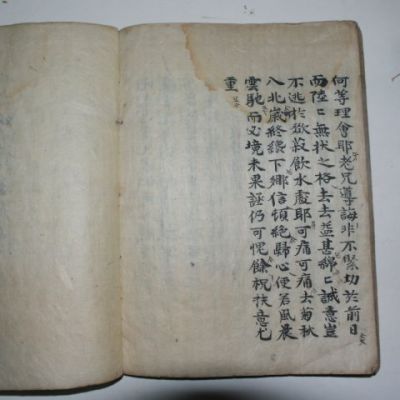 何等理會耶老兄導誨非不緊切於前日
而陸〻無狀之格去去益甚繆〻誠意豈
不逃於嶽
飮水處耶可痛可痛去菊秋
八北歲終
下鄕信頓絶歸心便若風晨
雲馳而必境未果
仍可愧餘祝扶意尤
重